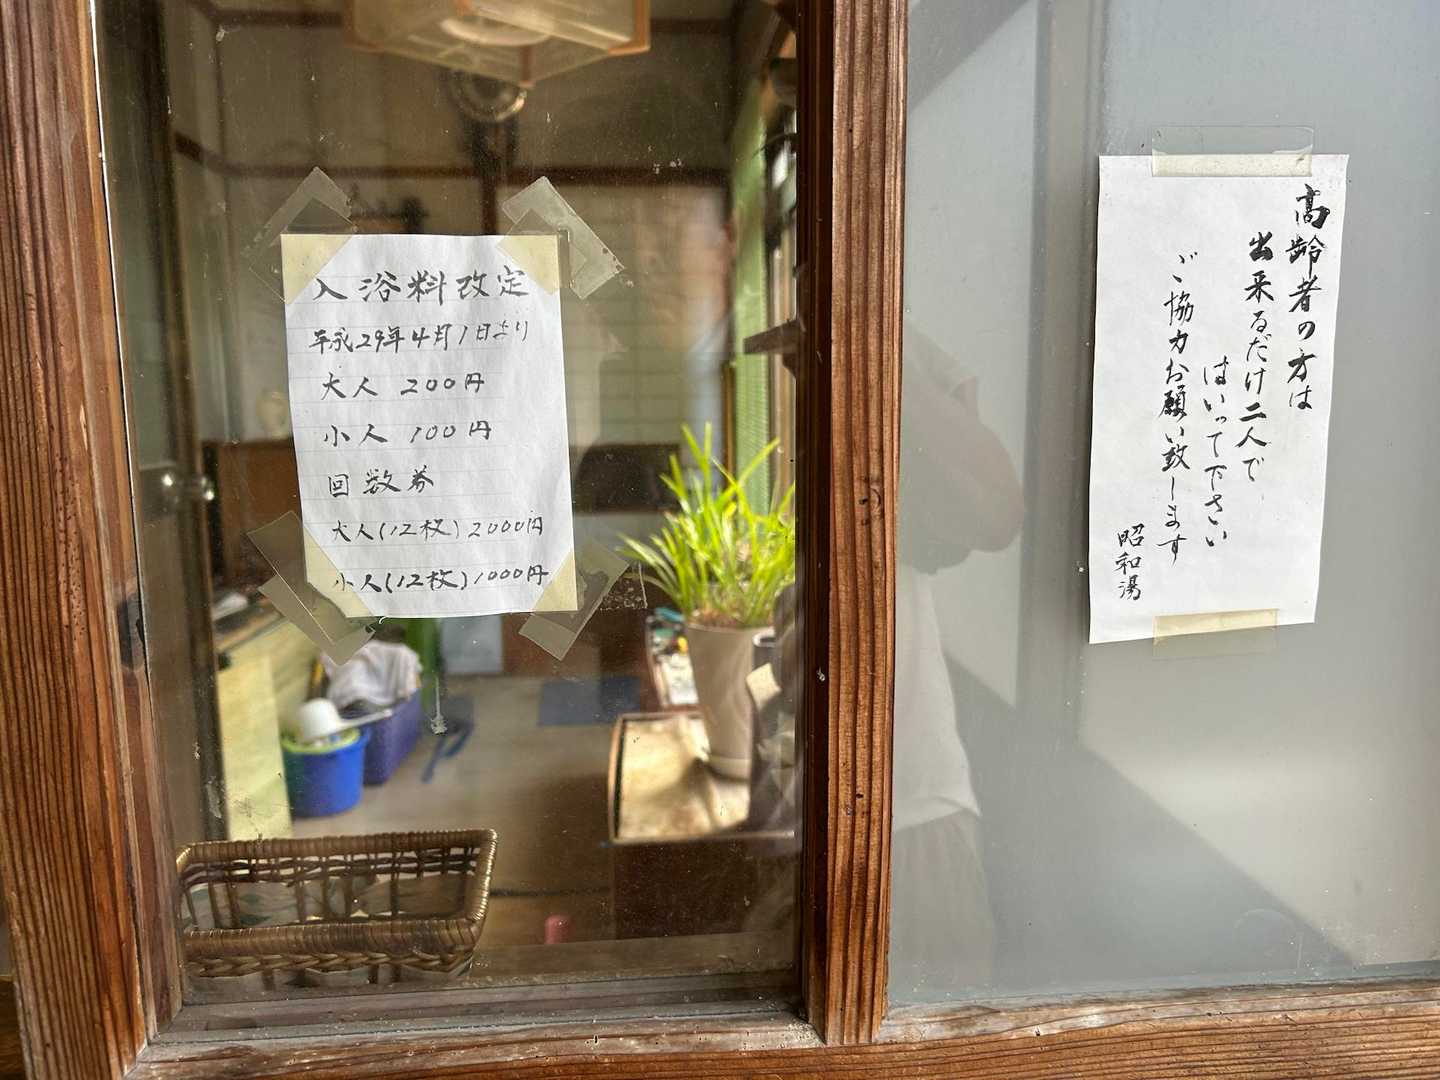 入浴料改定
平成29年4月1日より
大人 200円
小人 100円
回数券
大人(12枚)2000円
小人(12枚)1000円
高齢者の方は
出来るだけ二人で
はいって下さい
ご協力お願い致します
昭和湯